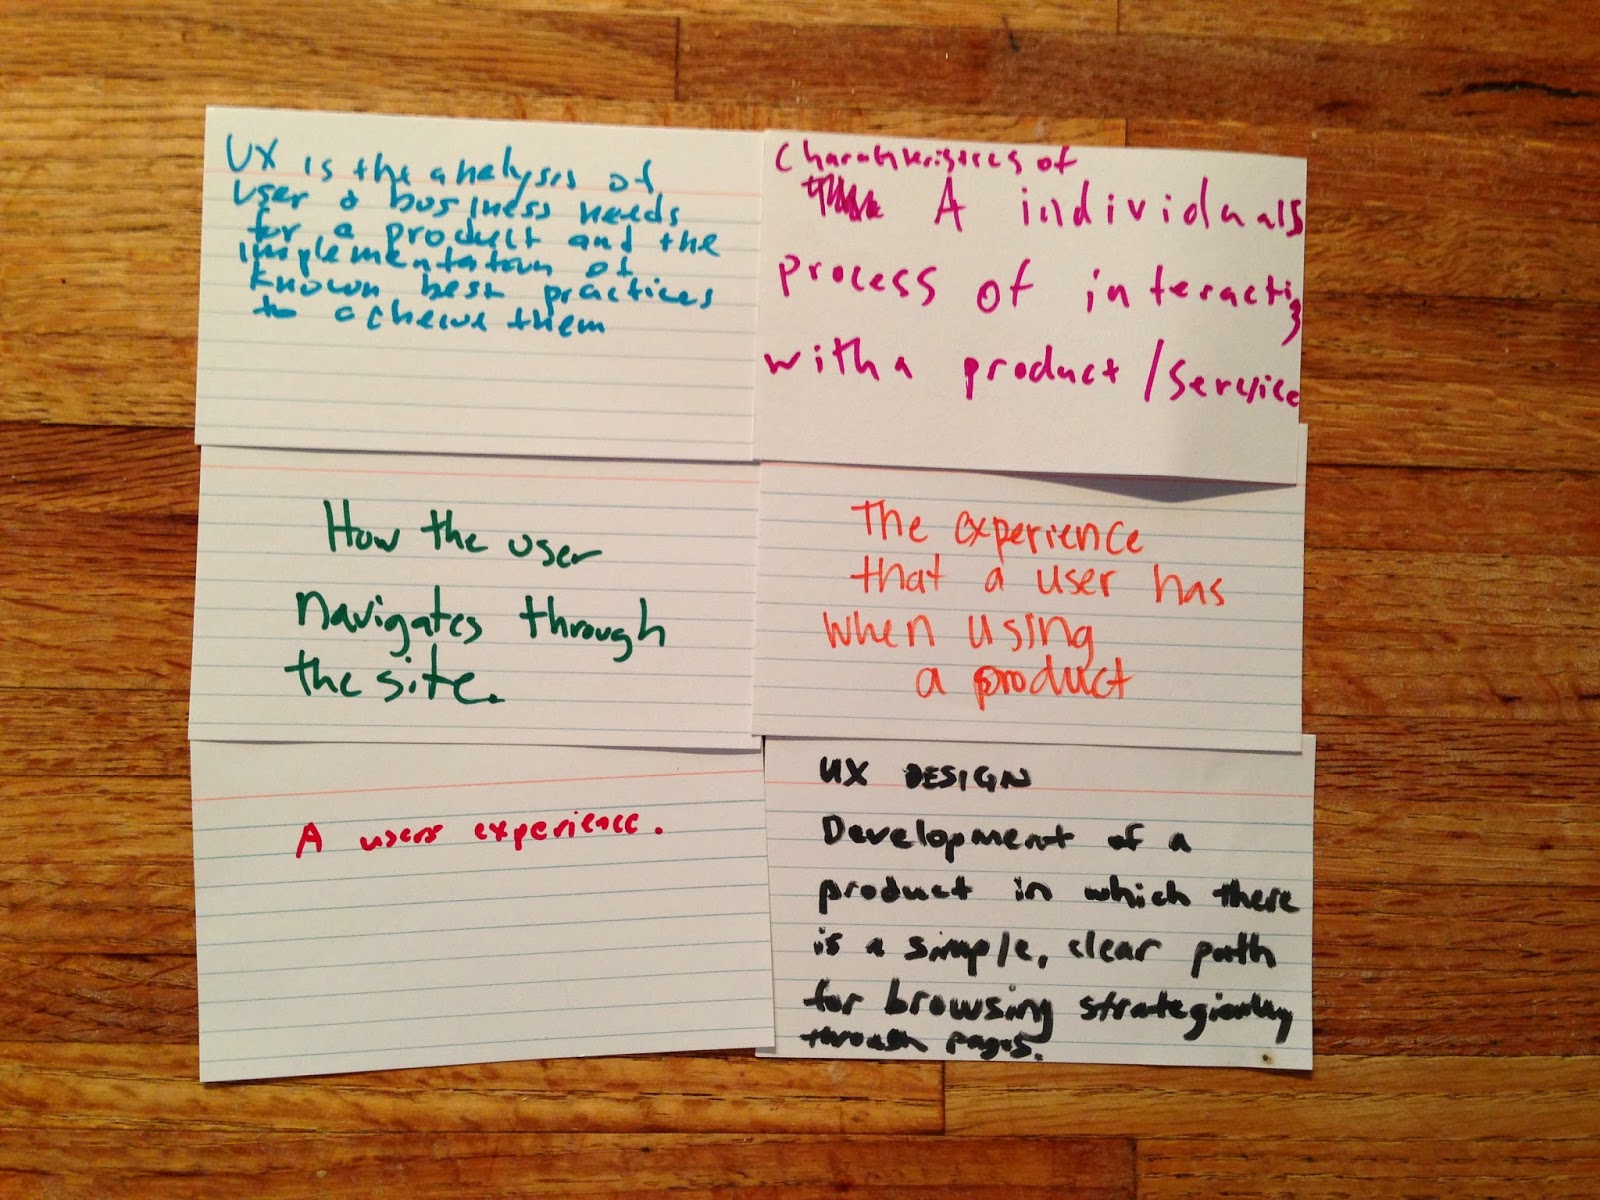 UX is the analysis of
user & business needs
for a product and the
implementation of
known best practices
to acheive them
Charachteristics of
A individuals
process of interacting
with a product / Service
How the user
navigates through
the site.
The experience
that a user has
when using
a product
A users experience.
UX DESIGN
Development of a
product in which there
is a simple, clear path
for browsing strategically
through pages.